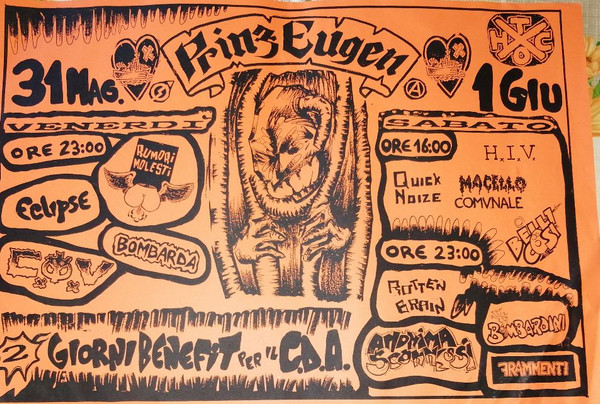 Prinz Eugen
T
H C
C
31 MAG.
1 GIU
VENERDÍ
ORE 23:00
RUMORI
MOLESTI
ECLIPSE
BOMBARDA
SABATO
ORE 16:00
H.I.V.
QUICK
NOIZE
MACELLO
COMVNALE
BELLI
COSÍ
ORE 23:00
ROTTEN
BRAIN
BOMBARDINI
ANONIMA
SCOMMESSI
FRAMMENTI
2 GIORNI BENEFIT PER IL C.D.A.